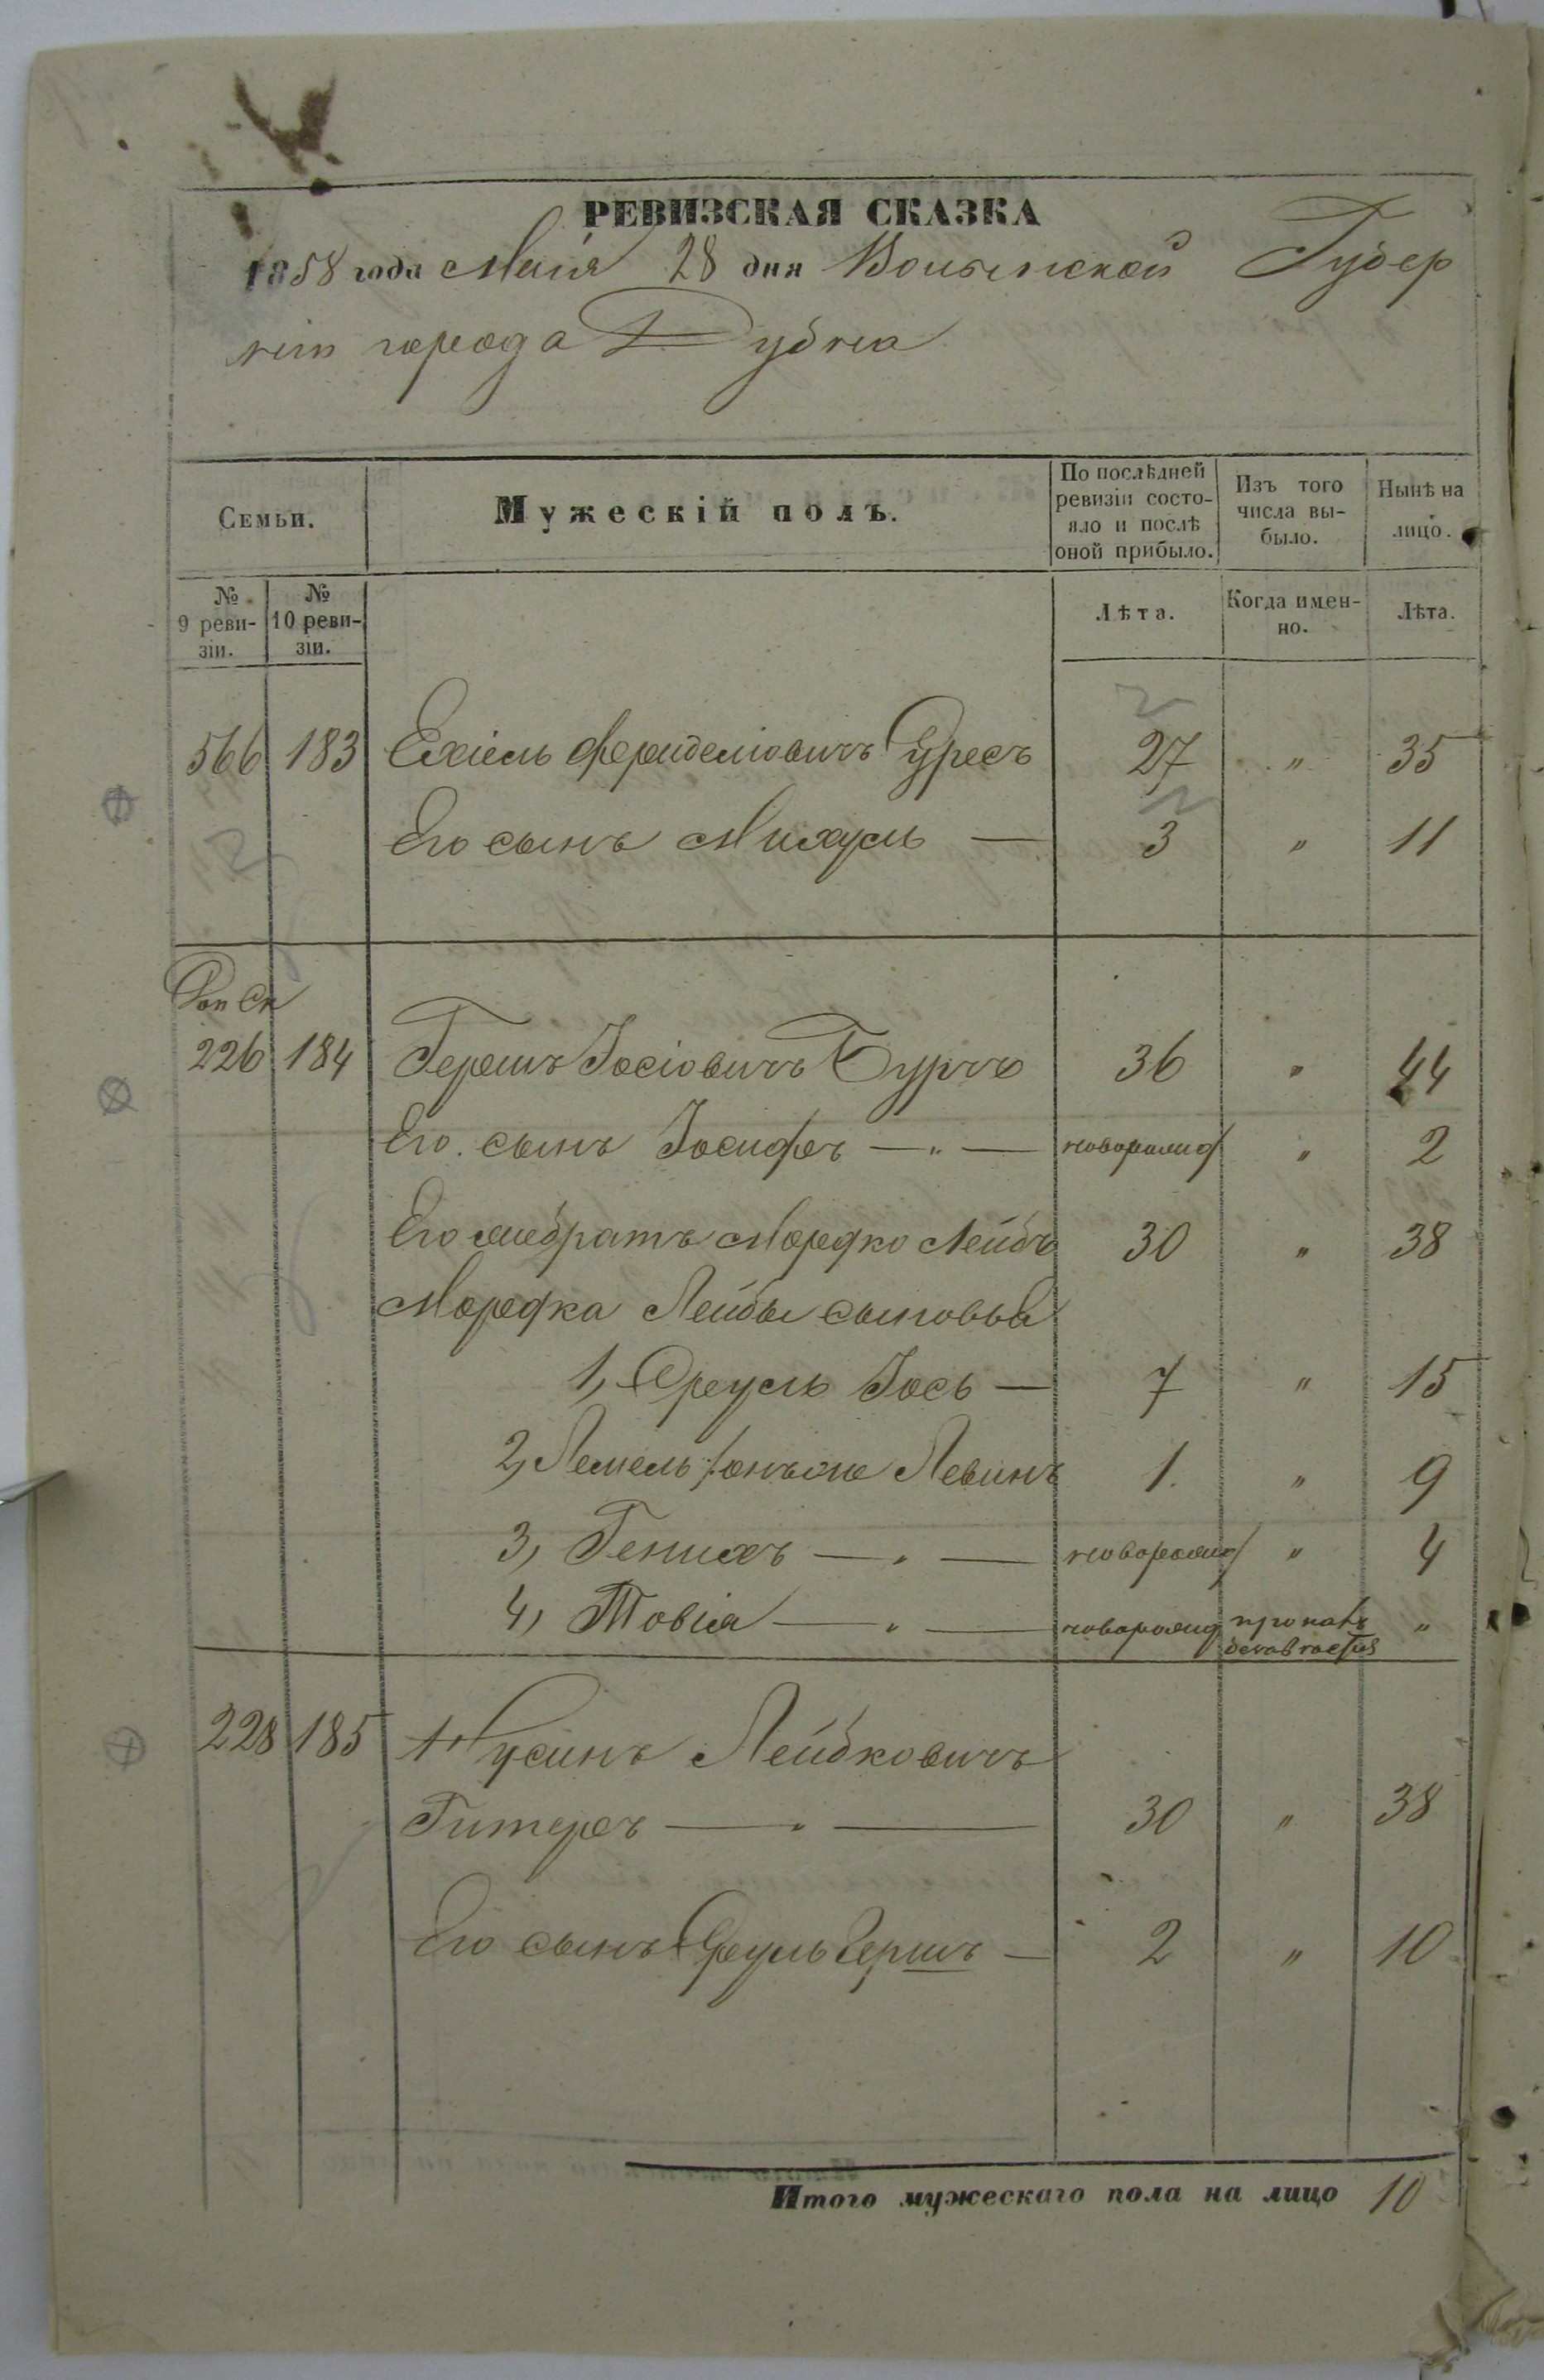 РЕВИЗСКАЯ СКАЗКА
1858 года Маія 28 дня Волынской Губер
ніи города Дубна
Семьи.
Мужескій полъ.
По послѣдней ревизіи состо-
яло и послѣ оной прибыло.
Изъ того числа вы-
было.
Нынѣ на лицо.
№ 9 реви-
зіи.
№ 10 реви-
зіи.
Лѣта.
Когда имен-
но.
Лѣта.
566 183 Ехіель 27 " 35
Его сынъ Михуль — 3 " 11
226 184 Гершъ Іосіовичъ 36 " 44
Его сынъ Іосифъ — " — новорожд " 2
Его братъ Мордко Лейбъ 30 " 38
Мордка Лейбы сыновья
1, Сруль Іось — 7 " 15
2, Лемель онъже Левинъ 1. " 9
3, Генихъ — " — новорожд " 4
4, Товія — " — новорожд "
228 185 Нусинъ Лейбковичъ
Гитеръ — " — 30 " 38
Его сынъ Сруль Гершъ — 2 " 10
Итого мужескаго пола на лицо 10